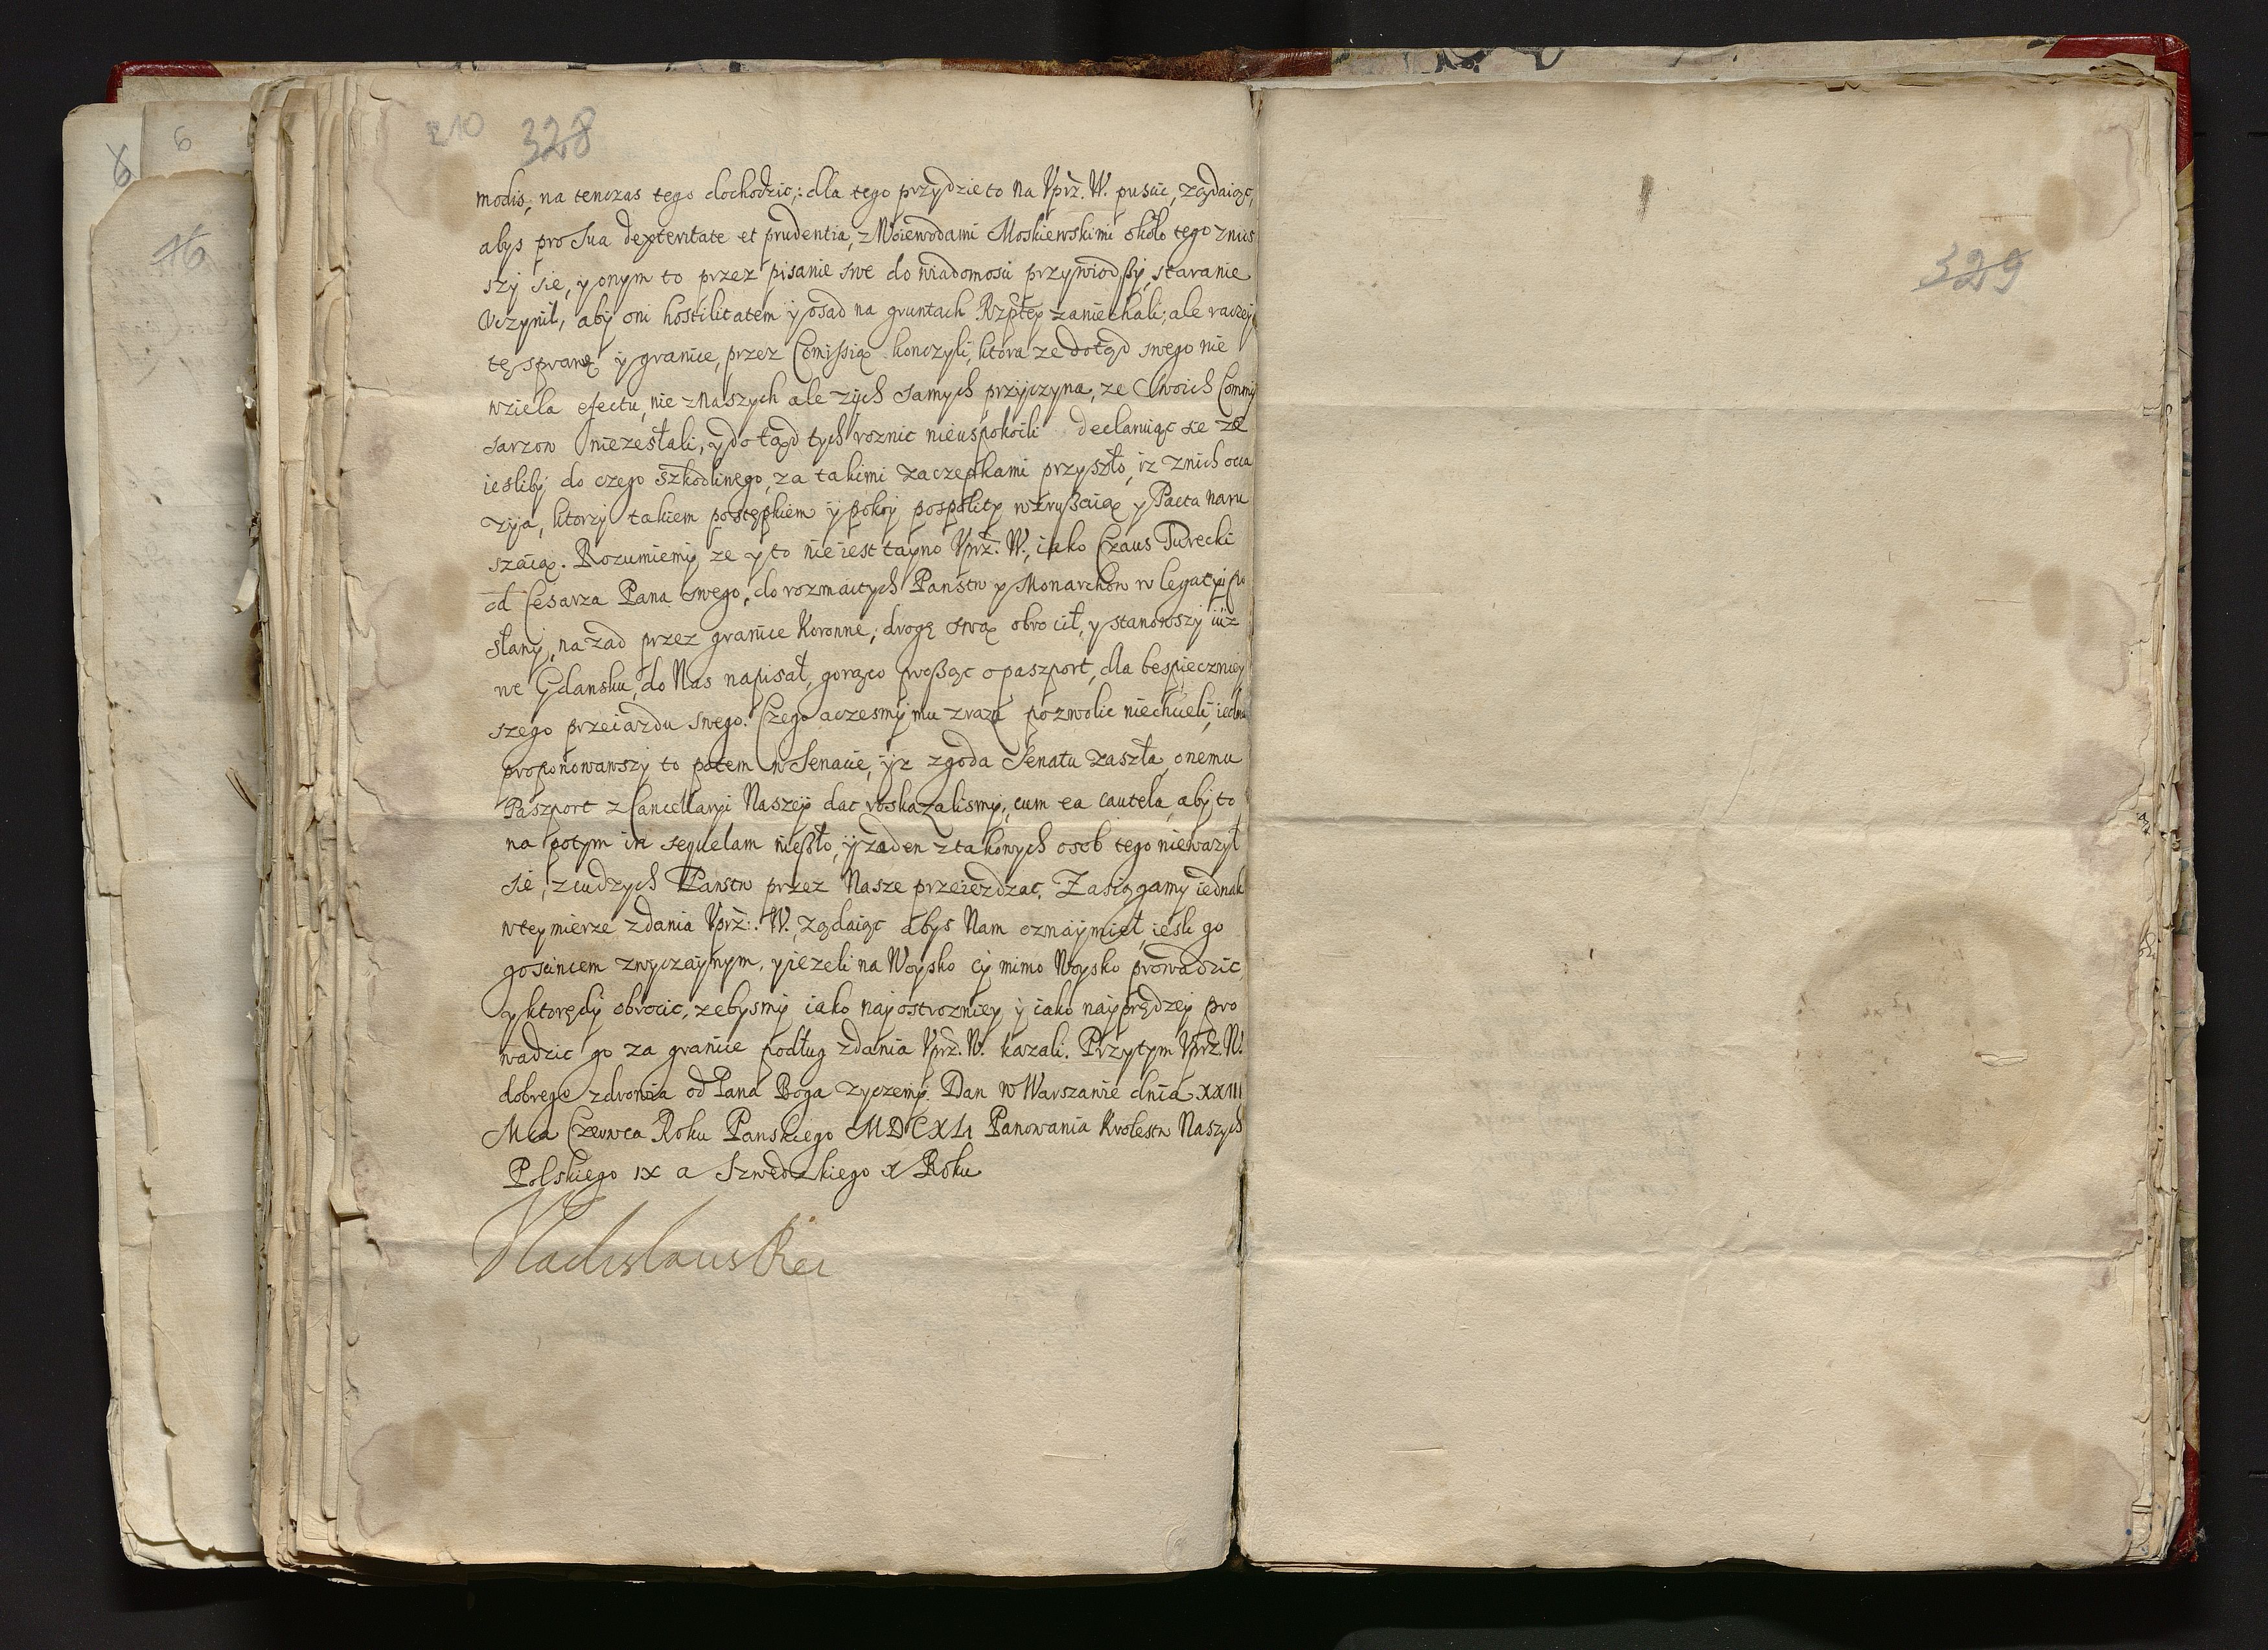 210 328
modis, na tenczas tego dochodzic; dla tego przydzie to na Vprz. W. pusćić, ządaiąc,
abys pro sua dexteritate et prudentia, z Woiewodami Moskiewskimi około tego znios
szy się, y onym to przez pisanie swe do wiadomości przywiodszy, staranie
vczynił, aby oni hostilitatem y osad na gruntach Rzptey zaniechali; ale raczey
tę sprawę y granice, przez Comissią konczyli, ktora ze dotąd swego nie
wziela efectu, nie z Naszych ale z ych samych przyczyna, ze Swoich Commis
sarzow niezesłali, y do tąd tych roznic nieuspokoili declaruiąc sie ze
iesliby do czego szkodliwego, za takimi zaczepkami przyszło, iz z nich occa
zyia, ktorzy takiem postępkiem y pokoy pospolity wzruszaią y Pacta naru
szaią. Rozumiemy ze y to nie iest tayno Vprz. W., iako Czaus Turecki
od Cesarza Pana swego, do rozmaitych Panstw y Monarchow w legatyi po
słany, na zad przez granice Koronne, drogę swą obrocił, y stanowszy iuz
we Gdansku, do Nas napisał, gorąco prosząc o paszport, dla bespieczniey
szego przeiazdu swego. Czego aczesmy mu zrazu pozwolic niechcieli, iedna
proponowawszy to potem w Senacie, yz zgoda Senatu zaszła, onemu
Paszport z Cancellaryi Naszey dac roskazalismy, cum ea cautela, aby to
na potym in sequelam nieszło, y zaden z takowych osob tego niewazył
się, z cudzych Panstw przez Nasze przeiezdzac. Zasiągamy iednak
w tey mierze zdania Vprz. W., ządaiąc abys Nam oznaymieł, iesli go
goscincem zwyczaynym, y iezeli na Woysko cy mimo Woysko prowadzic,
y ktorędy obrocic, zebysmy iako nayostrozniey y iako nayprędzey pro
wadzic go za granice podług zdania Vprz. W. kazali. Przytym Vprz. W.
dobrego zdrowia od Pana Boga zyczemy. Dan w Warszawie dnia XXIII
Mca Czerwca Roku Panskiego MDCXLI Panowania Krolestw Naszych
Polskiego IX a Szwedzkiego X Roku
Vladislaus Rex
329
16
6